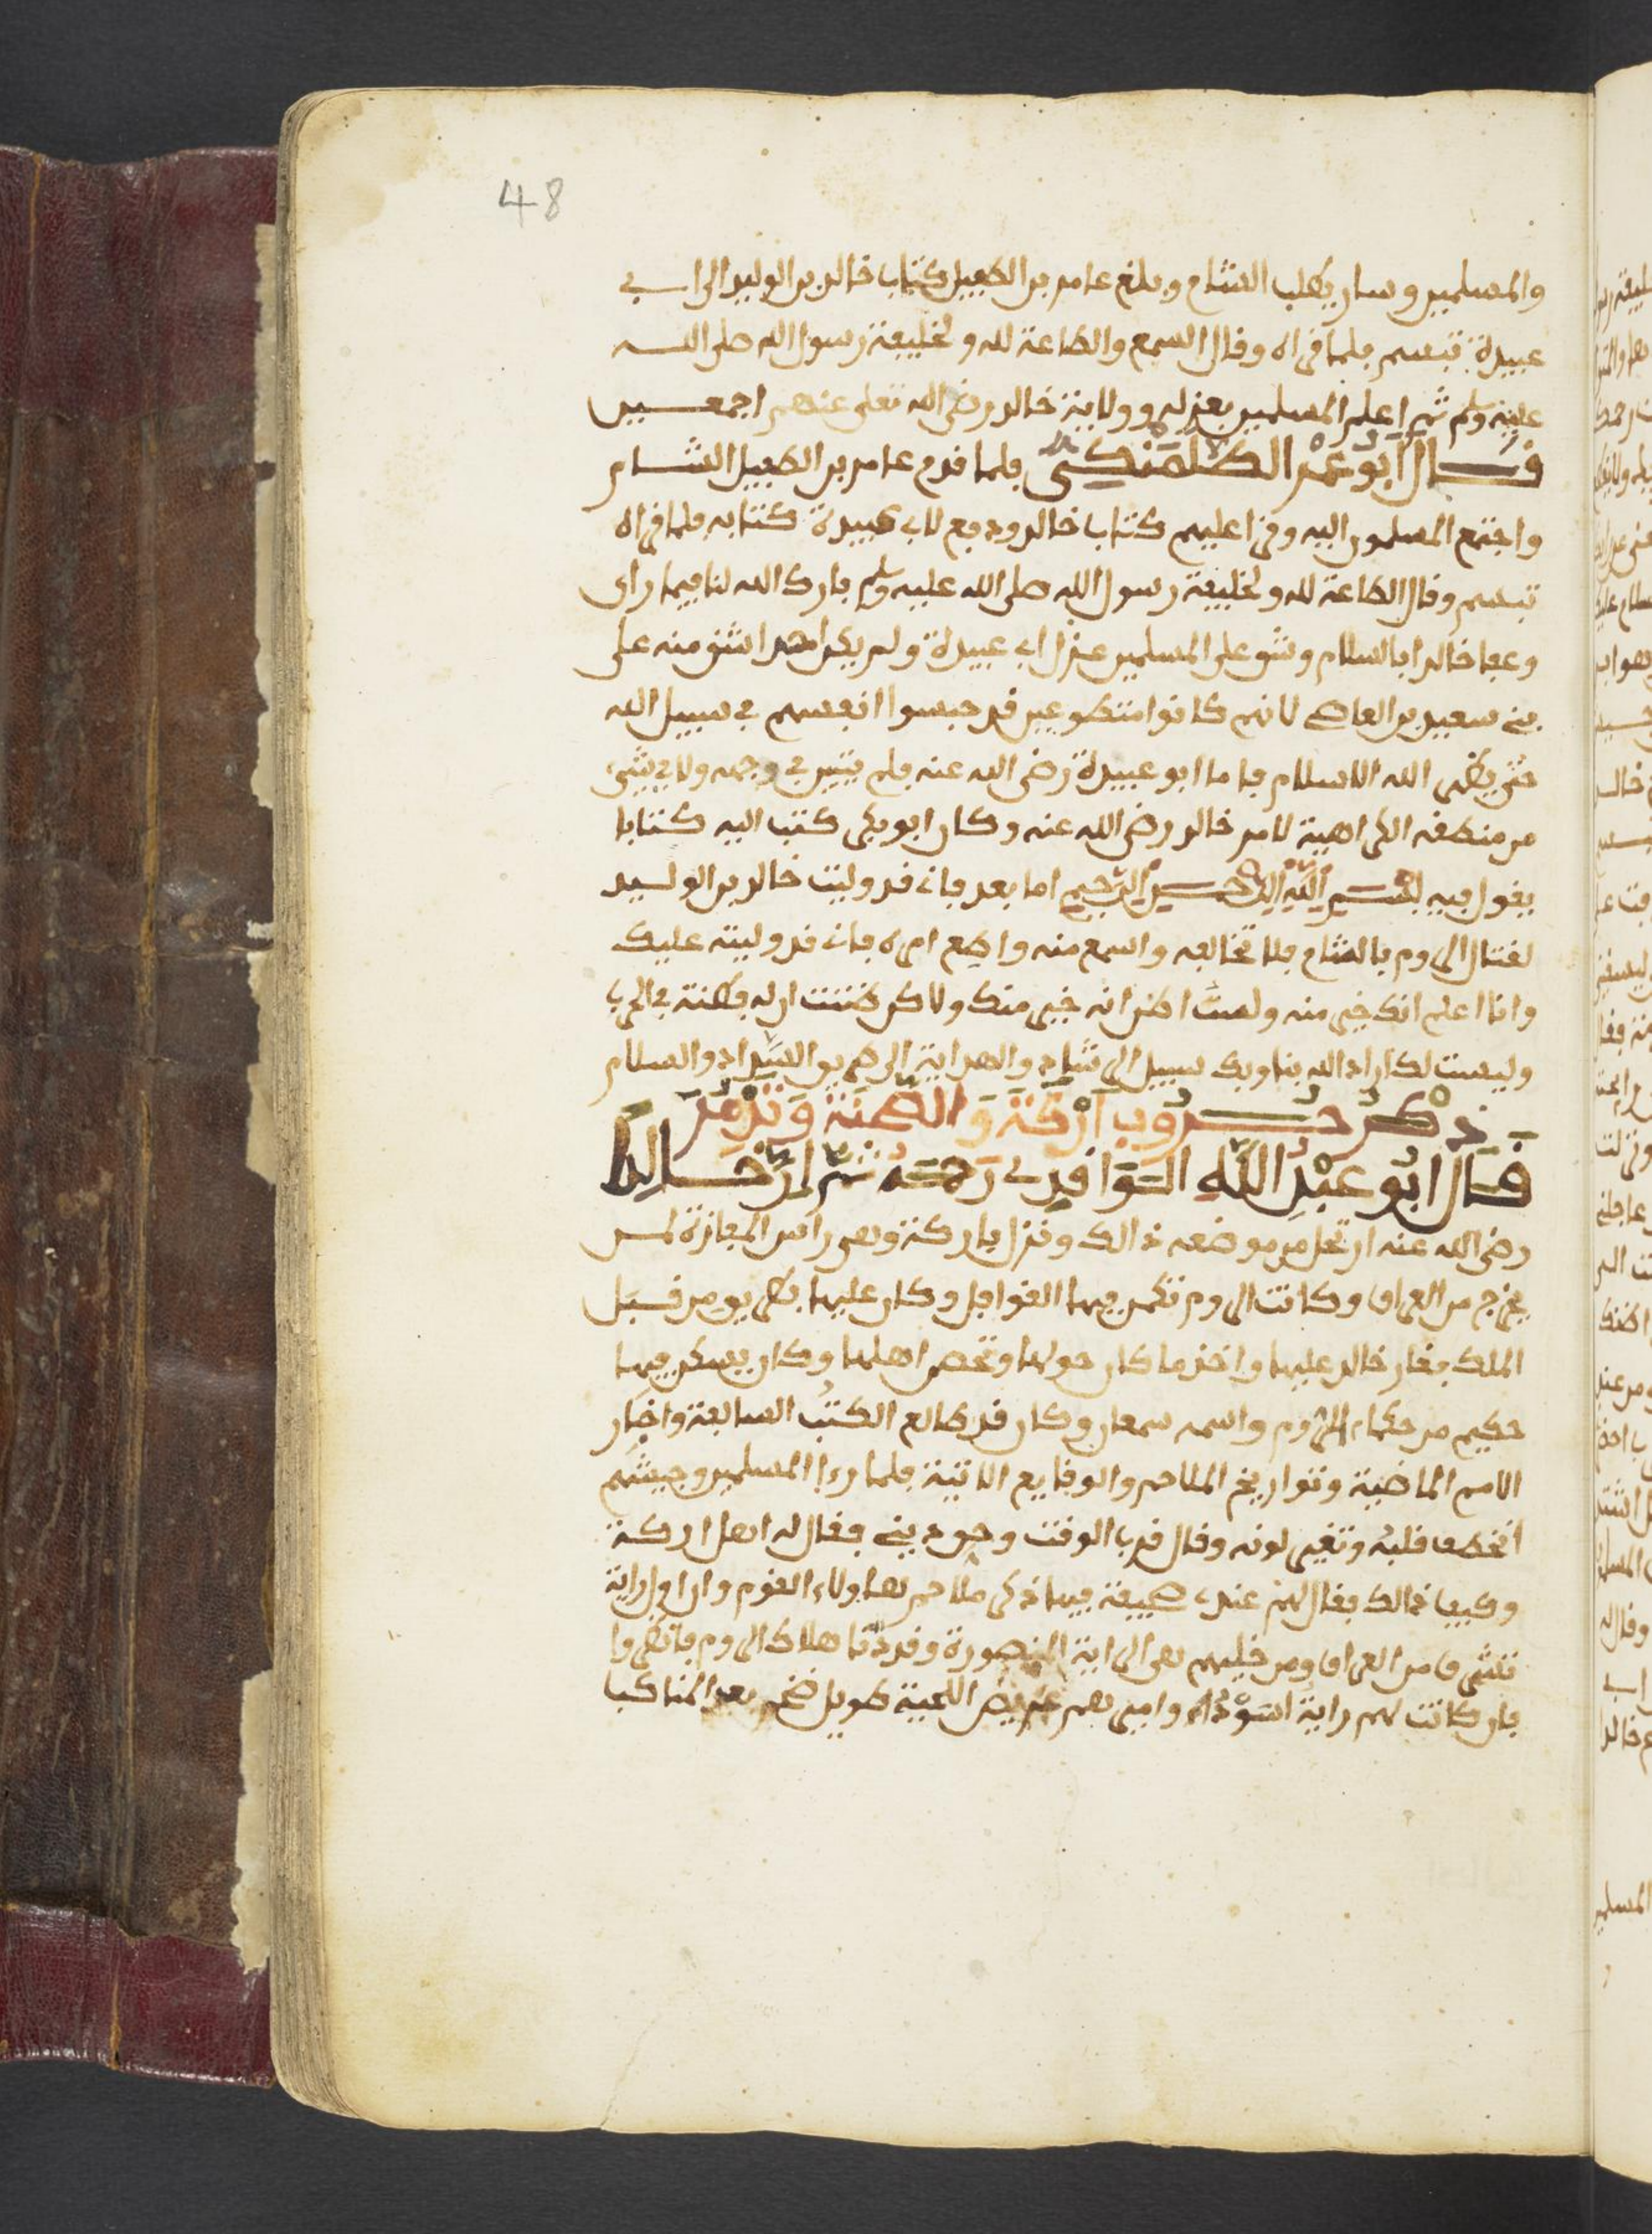 48
والمسلمين وسار يطلب الشام وبلغ عامر بن الطفيل بكتاب خالد بن الوليد الى ابي
عبيدة فتبسم فلما قراه وقال السمع والطاعة لله ولخليفة رسول الله صلى الله
عليه وسلم ثم اعلم المسلمين بعزله وولاية خالد رضي الله تعلى عنهم اجمعين
قال ابو عمر الطلمنكي فلما قدم عامر بن الطفيل الشام
واجتمع المسلمون اليه وقرا عليهم كتاب خالد ودفع لابي عبيدة كتابه فلما قراه
تبسم وقال الطاعة لله ولخليفة رسول الله صلى الله عليه وسلم بارك الله لنا فيما راى
وعجا خالدا بالسلام وشق على المسلمين عزل ابي عبيدة ولم يكن احد اشق منه على
بني سعيد بن العاصي لانهم كانوا متطوعين قد حبسوا انفسهم في سبيل الله
حتى يظهر الله الاسلام فاما ابو عبيدة رضي الله عنه فلم يتبين في وجهه ولا في شيء
من منطقه الكراهية لامر خالد رضي الله عنه وكان ابو بكر كتب اليه كتابا
يقول فيه بسم الله الرحمن الرحيم اما بعد فاني قد وليت خالد بن الوليد
لقتال الروم بالشام فلا تخالفه واسمع منه واطع امره فاني قد وليته عليك
وانا اعلم انك خير منه ولست اظن انه خير منك ولاكن ظننت ان له فطنة في الحرب
وليست لك اراد الله بنا وبك سبيل الرشاد والهداية الى طريق السداد والسلام
ذكر حروب اركة والطنة وتدمر
قال ابو عبد الله الواقدي رحمه ثم ان خالدا
رضي الله عنه ارتحل من موضعه ذالك ونزل باركة وهي راس المجازة لمن
يخرج من العراق وكانت الروم تكمن فيها القوافل وكان عليها بطريق من قبل
الملك فغار خالد عليها واخذ ما كان حولها وتحصن اهلها وكان يسكن فيها
حكيم من حكماء الروم واسمه سمعان وكان قد طالع الكتب السالفة واخبار
الامم الماضية وتواريخ الملاحم والوقايع الاتية فلما رءا المسلمين وجيشهم
انخطف قلبه وتغير لونه وقال قرب الوقت وحق ديني فقال له اهل اركة
وكيف ذالك فقال لهم عندي صحيفة فيها ذكر ملاحم هاولاء القوم وان اول راية
تشرق من العراق ومن خليهم هي الراية المنصورة وقد دنا هلاك الروم فانظروا
فان كانت لهم راية السوداء واميرهم عريض اللحية طويل ضخم بعيد المناكب